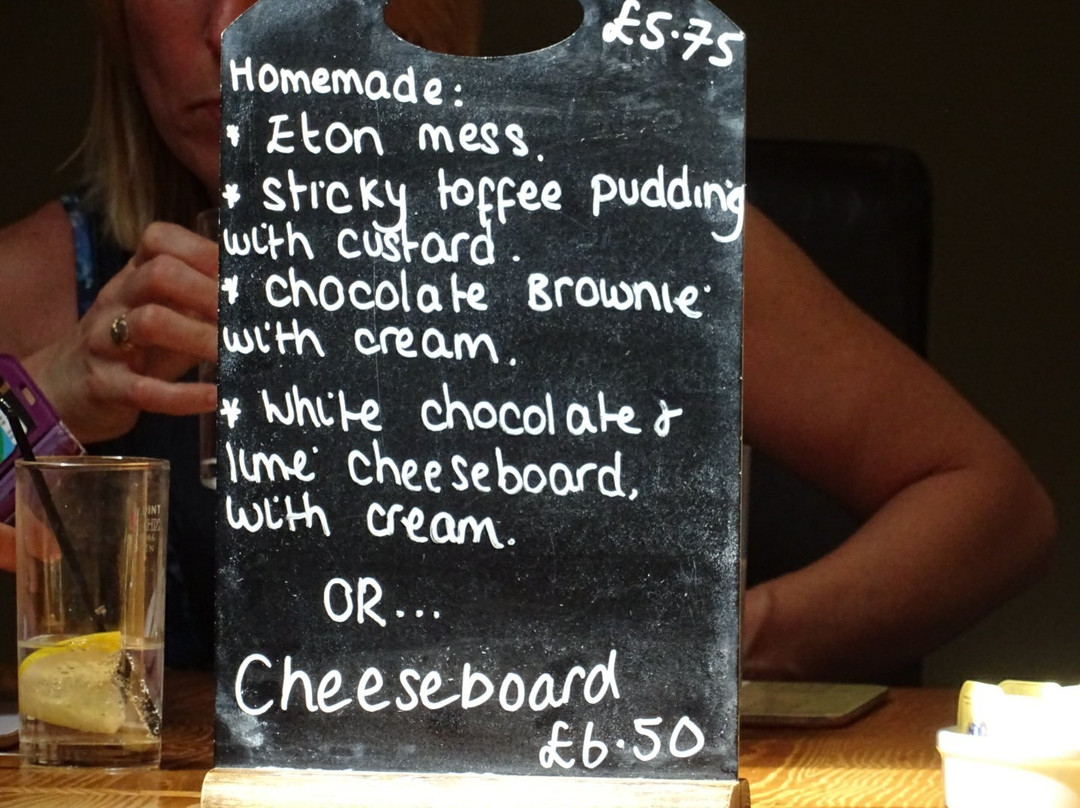 £5.75
Homemade:
* Eton mess.
* sticky toffee pudding
with custard.
* chocolate Brownie
with cream.
* White chocolate &
lime cheeseboard,
with cream.
OR...
Cheeseboard
£6.50